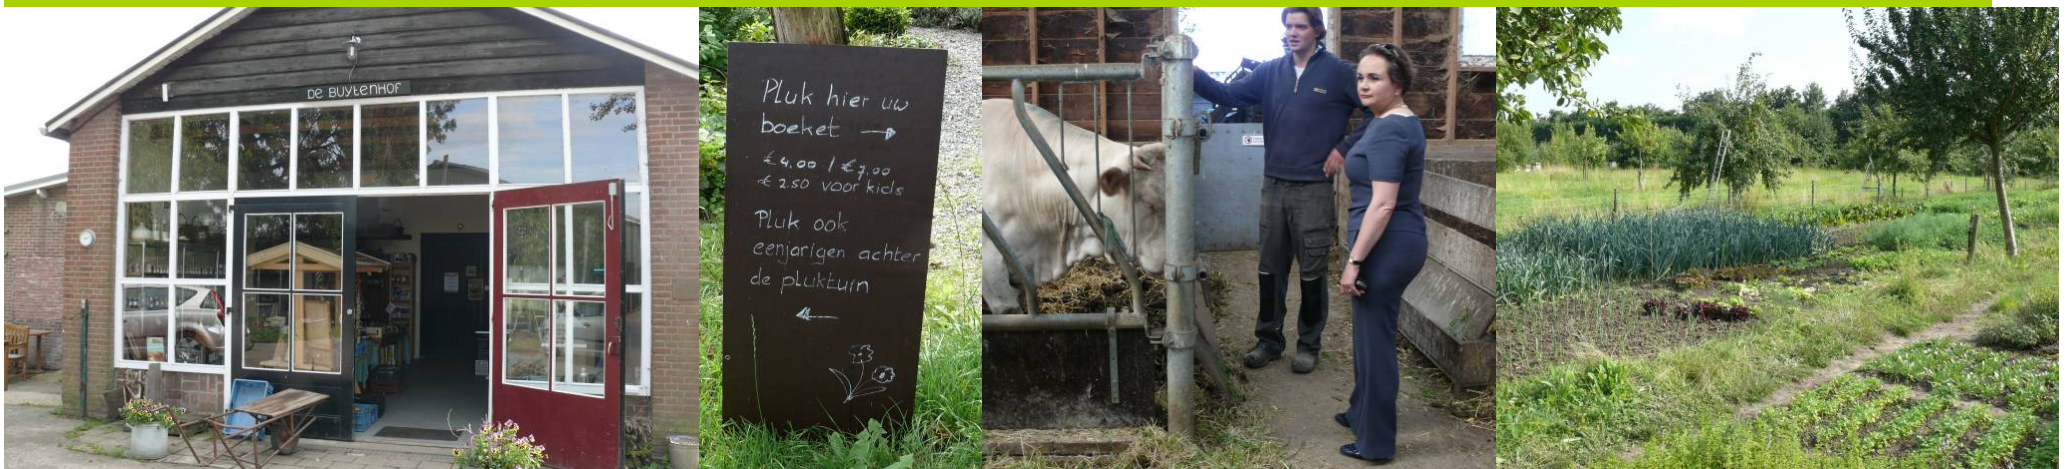 DE BUYTENHOF
Pluk hier uw
boeket →
€ 4.00 / € 7,00
€ 2.50 voor kids
Pluk ook
eenjarigen achter
de pluktuin
←